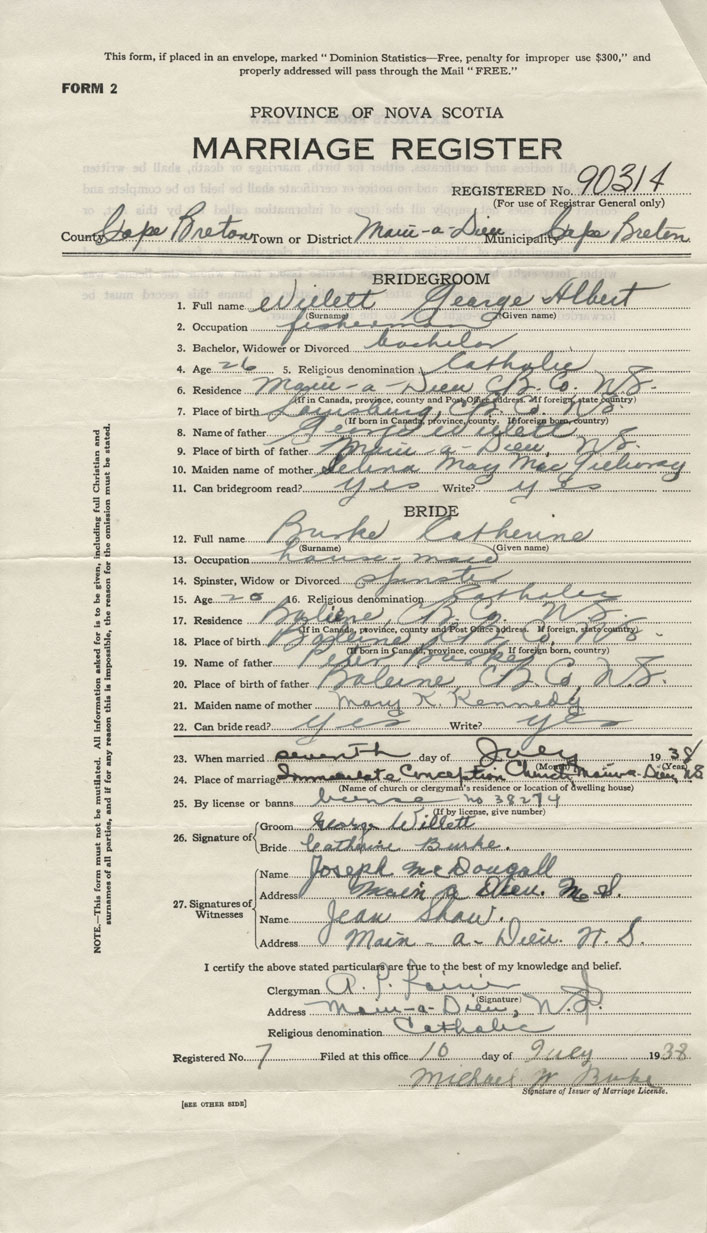 This form, if placed in an envelope, marked "Dominion Statistics—Free, penalty for improper use $300," and
properly addressed will pass through the Mail "FREE."
FORM 2
PROVINCE OF NOVA SCOTIA
MARRIAGE REGISTER
REGISTERED No. 90314
(For use of Registrar General only)
County Cape Breton Town or District Main-a-Dieu Municipality Cape Breton
BRIDEGROOM
1. Full name Willett George Albert
(Surname) (Given name)
2. Occupation fisherman
3. Bachelor, Widower or Divorced bachelor
4. Age 26 5. Religious denomination Catholic
6. Residence Main-a-Dieu C.B. Co. N.S.
(If in Canada, province, county and Post Office address. If foreign, state country)
7. Place of birth Louisburg, C.B. Co. N.S.
(If born in Canada, province, county. If foreign born, country)
8. Name of father George Willett
9. Place of birth of father Main-a-Dieu, N.S.
10. Maiden name of mother Selina May Mac
11. Can bridegroom read? yes Write? yes
BRIDE
12. Full name Burke Catherine
(Surname) (Given name)
13. Occupation house-maid
14. Spinster, Widow or Divorced spinster
15. Age 16. Religious denomination Catholic
17. Residence Baleine, C.B. Co. N.S.
(If in Canada, province, county and Post Office address. If foreign, state country)
18. Place of birth Baleine C.B. Co, N.S.
(If born in Canada, province, county. If foreign born, country)
19. Name of father Peter Burke
20. Place of birth of father Baleine C.B. Co, N.S.
21. Maiden name of mother Mary K. Kennedy
22. Can bride read? yes Write? yes
23. When married seventh day of July 1938
(Month) (Year)
24. Place of marriage Immaculate Conception Church, Main-a-Dieu, N.S
(Name of church or clergyman's residence or location of dwelling house)
25. By license or banns license no 38274
(If by license, give number)
26. Signature of
Groom George Willett
Bride Catharine Burke.
27. Signatures of Witnesses
Name Joseph McDougall
Address Main a Dieu. N.S.
Name Jean Shaw.
Address Main-a-Dieu. N.S.
I certify the above stated particulars are true to the best of my knowledge and belief.
Clergyman A. P.
(Signature)
Address Main-a-Dieu, N.S.
Religious denomination Catholic
Registered No. 7 Filed at this office 10 day of July 1938
Michael W Burke
Signature of Issuer of Marriage License.
[SEE OTHER SIDE]
NOTE.—This form must not be mutilated. All information asked for is to be given, including full Christian and
surnames of all parties, and if for any reason this is impossible, the reason for the omission must be stated.